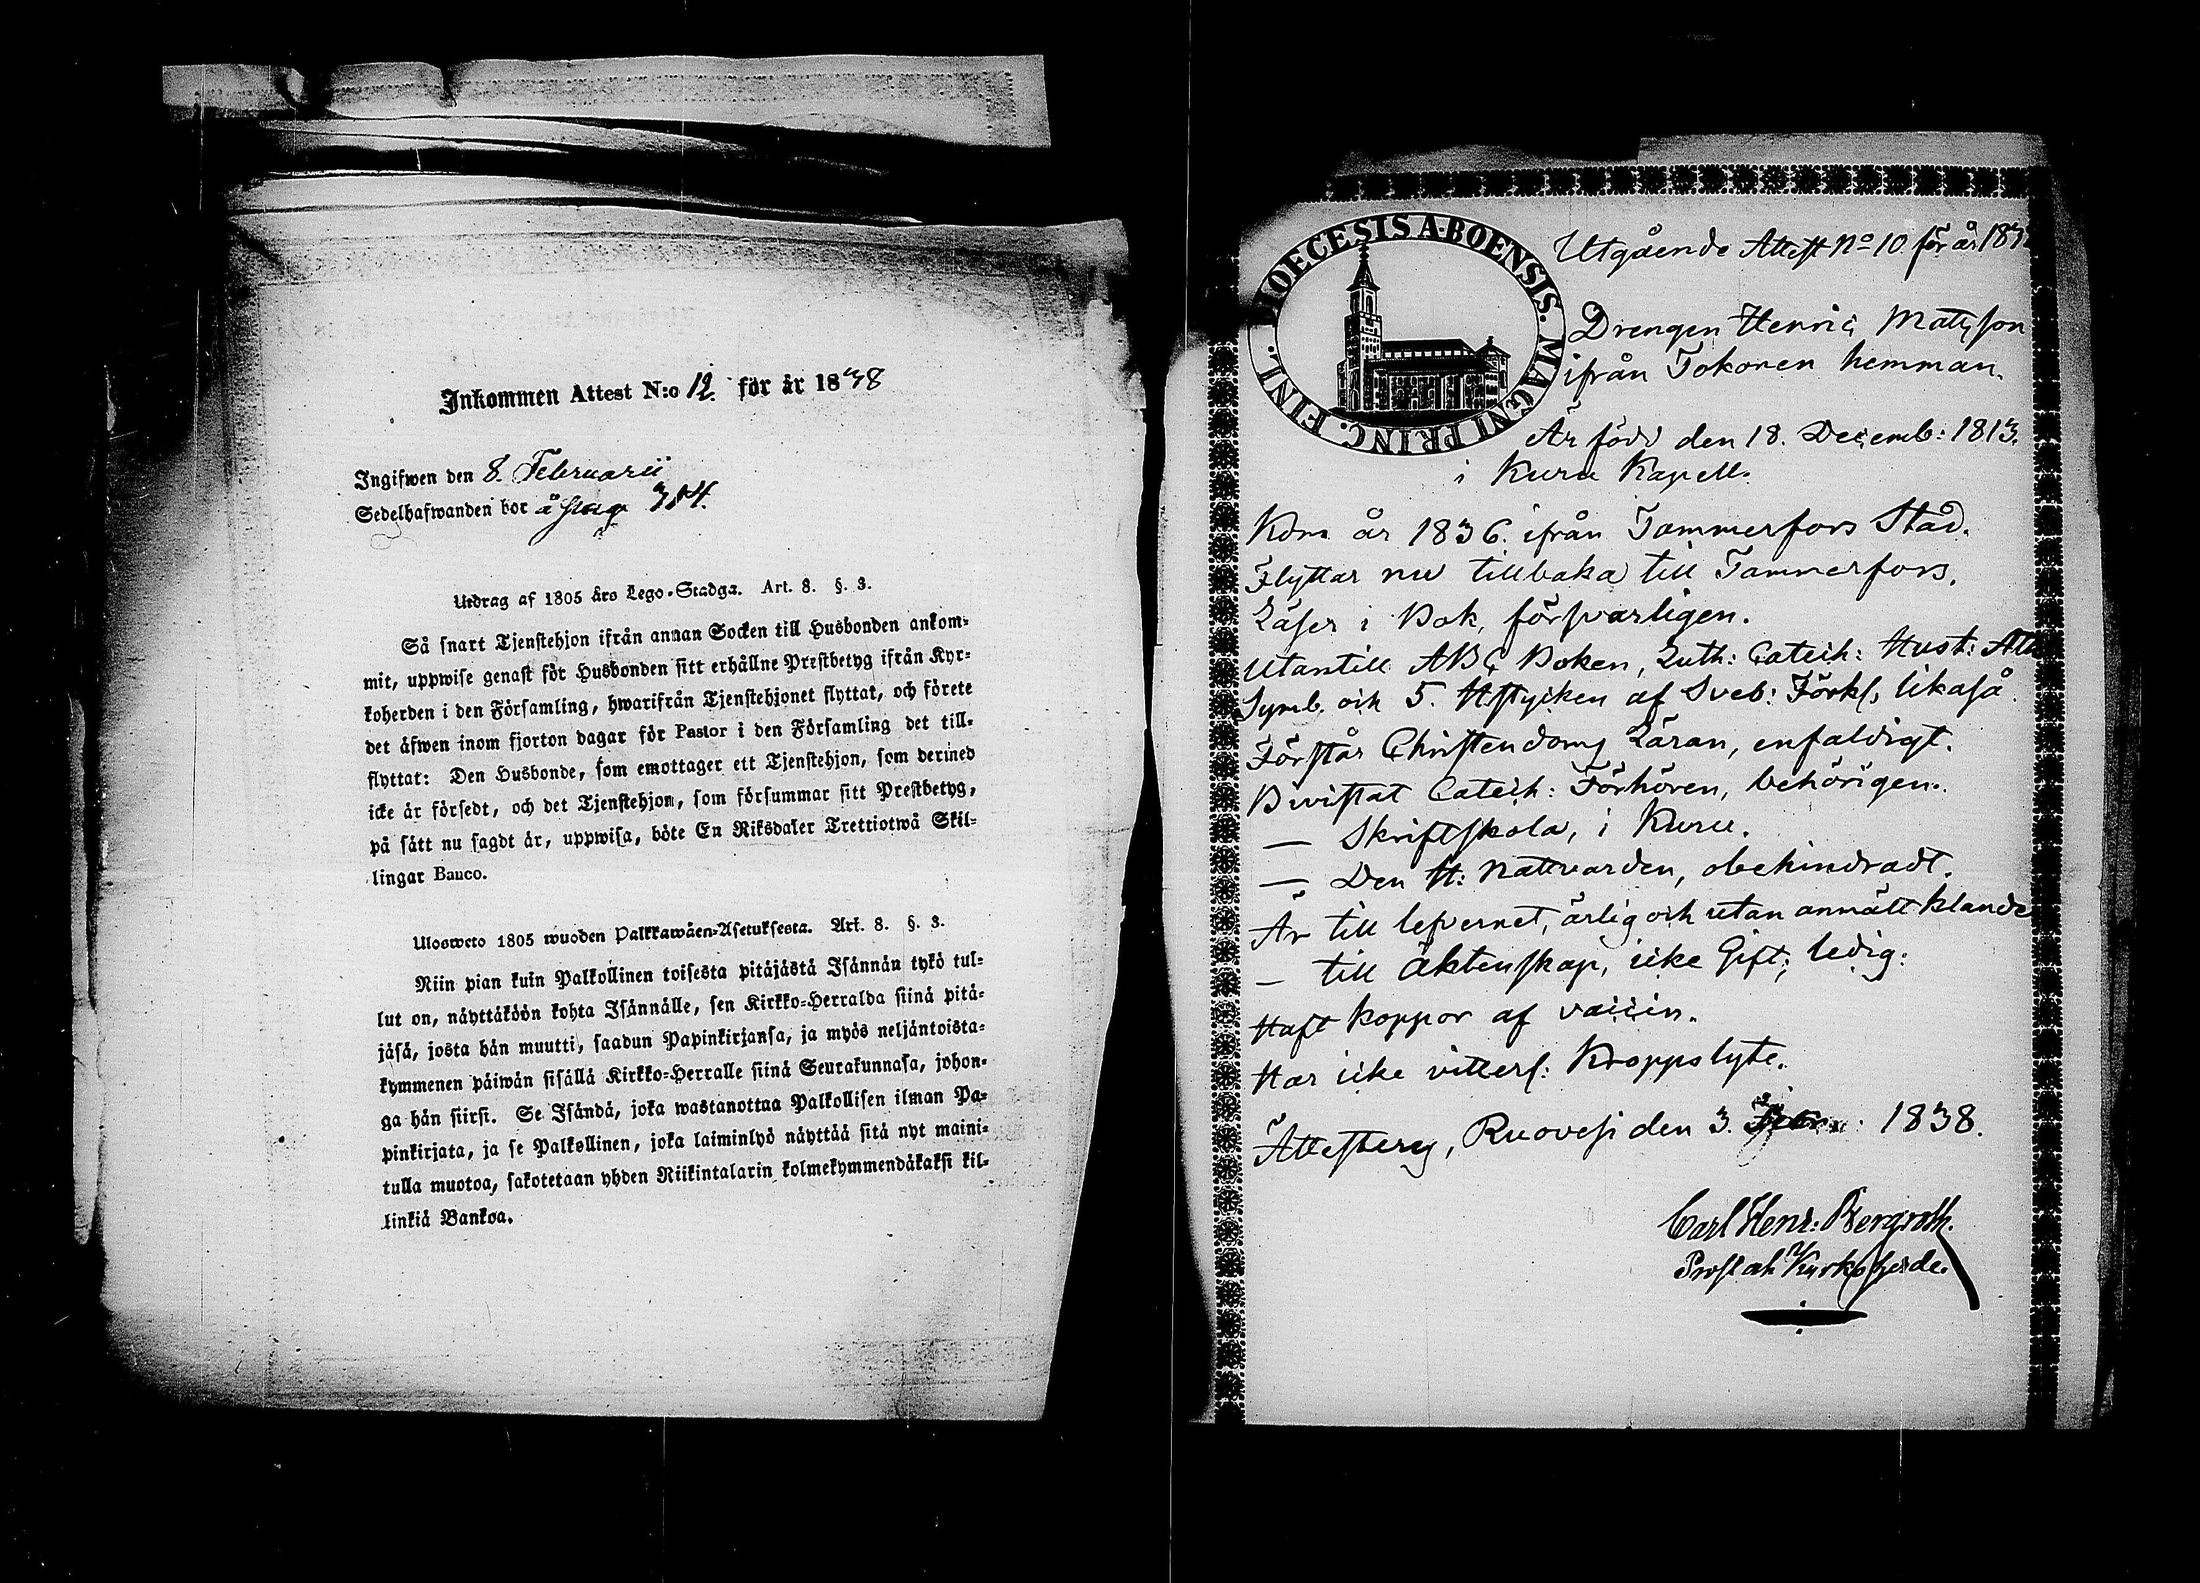 Inkommen Attest N:o 12. för år 1838
Ingifwen den 8. Februarii
Sedelhafwanden bor å 314.
Utdrag af 1805 års Lego-Stadga. Art. 8. §. 3.
Så snart Tjenstehjon ifrån annan Socken till Husbonden ankom-
mit, uppwise genast för Husbonden sitt erhållne Prestbetyg ifrån Kyr-
koherden i den Församling, hwarifrån Tjenstehjonet flyttat, och förete
det äfwen inom fjorton dagar för Pastor i den Församling det till-
flyttat: Den Husbonde, som emottager ett Tjenstehjon, som dermed
icke är försedt, och det Tjenstehjon, som försummar sitt Prestbetyg,
på sätt nu sagdt är, uppwisa, böte En Riksdaler Trettiotwå Skil-
lingar Banco.
Ulosweto 1805 wuoden Palkkawäen-Asetuksesta. Art. 8. §. 3.
Niin pian kuin Palkollinen toisesta pitäjästä Isännän tykö tul-
lut on, näyttäköön kohta Isännälle, sen Kirkko-Herralda siinä pitä-
jäsä, josta hän muutti, saadun Papinkirjansa, ja myös neljäntoista-
kymmenen päiwän sisällä Kirkko-Herralle siinä Seurakunnasa, johon-
ga hän siirsi. Se Isändä, joka wastanottaa Palkollisen ilman Pa-
pinkirjata, ja se Palkollinen, joka laiminlyö näyttää sitä nyt maini-
tulla muotoa, sakotetaan yhden Riikintalarin kolmekymmendäkaksi kil-
linkiä Bankoa.
DIOECESIS ABOENSIS. MAGNI PRINC. FINL.
Utgående Attest No 10 för år 183
Drengen Henric Matsson
ifrån Tokonen hemman.
Är född den 18. Decemb: 1813.
i Kuru Kapell.
Kom år 1836. ifrån Tammerfors Stad.
Flyttar nu tillbaka till Tammerfors.
Läser i Bok, försvarligen.
Utantill ABC Boken, Luth: Catech: Hust:
Symb. och 5. Hstycken af Sveb: Förkl, likaså.
Förstår Christendoms Läran, enfaldigt.
Bivistat Catech: Förhören, behörigen.
— Skriftskola, i Kuru.
— Den H: Nattvarden, obehindradt.
Är till lefvernet, ärlig och utan anmält klander
— till Äktenskap, icke Gift; ledig:
Haft Koppor af vaccin.
Har icke vitterl: Kroppslyte.
Attesterg, Ruovesi den 3. 1838.
Carl Henr: Bergroth.
Prost och Kyrkoherde.